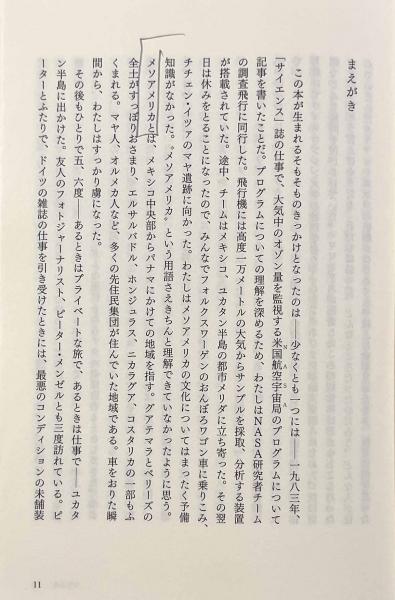 まえがき
この本が生まれるそもそものきっかけとなったのは――少なくとも一つには――一九八三年、
「サイエンス」誌の仕事で、大気中のオゾン量を監視する米国航空宇宙局のプログラムについて
NASA
記事を書いたことだ。プログラムについての理解を深めるため、わたしはNASA研究者チーム
の調査飛行に同行した。飛行機には高度一万メートルの大気からサンプルを採取、分析する装置
が搭載されていた。途中、チームはメキシコ、ユカタン半島の都市メリダに立ち寄った。その翌
日は休みをとることになったので、みんなでフォルクスワーゲンのおんぼろワゴン車に乗りこみ、
チチェン・イツァのマヤ遺跡に向かった。わたしはメソアメリカの文化についてはまったく予備
知識がなかった。〝メソアメリカ〟という用語さえきちんと理解できていなかったように思う。
メソアメリカとは、メキシコ中央部からパナマにかけての地域を指す。グアテマラとベリーズの
全土がすっぽりおさまり、エルサルバドル、ホンジュラス、ニカラグア、コスタリカの一部もふ
くまれる。マヤ人、オルメカ人など、多くの先住民集団が住んでいた地域である。車をおりた瞬
間から、わたしはすっかり虜になった。
その後もひとりで五、六度――あるときはプライベートな旅で、あるときは仕事で――ユカタ
ン半島に出かけた。友人のフォトジャーナリスト、ピーター・メンゼルとも三度訪れている。ピ
ーターとふたりで、ドイツの雑誌の仕事を引き受けたときには、最悪のコンディションの未舗装
11